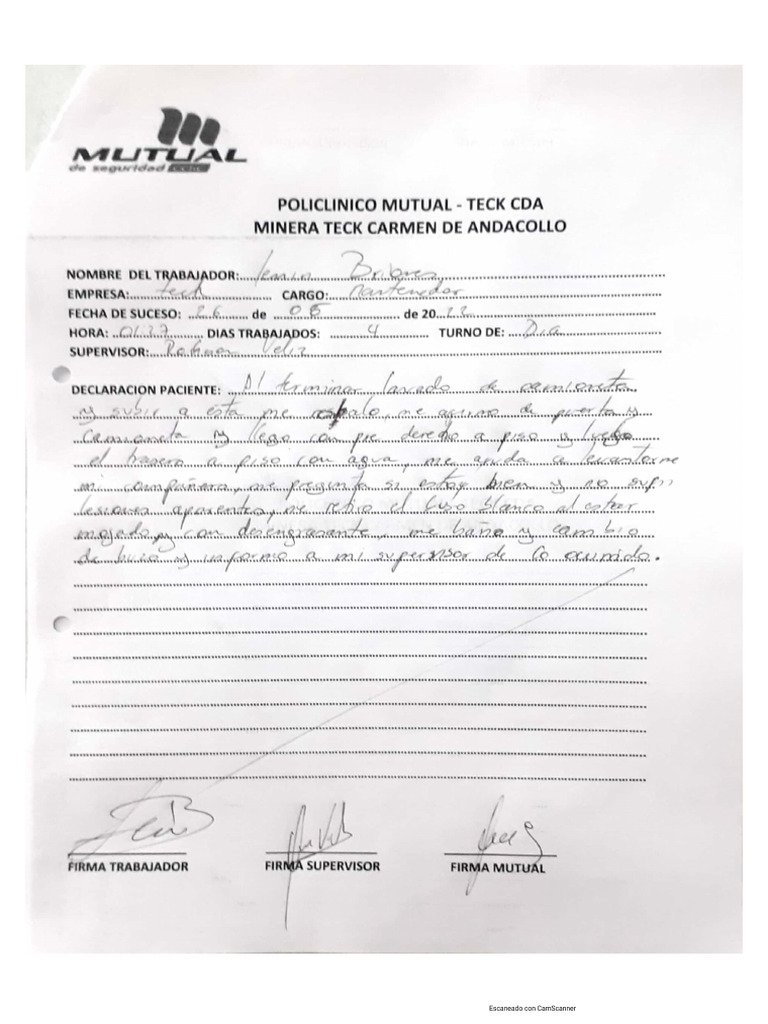 MUTUAL
de seguridad CChC
POLICLINICO MUTUAL - TECK CDA
MINERA TECK CARMEN DE ANDACOLLO
NOMBRE DEL TRABAJADOR: Briones
EMPRESA: teck CARGO: Mantenedor
FECHA DE SUCESO: 26 de 05 de 2023
HORA: 01:37 DIAS TRABAJADOS: 4 TURNO DE: Dia
SUPERVISOR: Veliz
DECLARACION PACIENTE: Al terminar lavado de camioneta
y subir a esta me resbalo, me afirmo de puerta y
camioneta y llego con pie derecho a piso y luego
el trasero a piso con agua, me ayuda a levantarme
mi compañera, me pregunta si estoy bien y no sufri
lesiones aparentes, me retiro el buso blanco al estar
mojado y con desengrasante, me baño y cambio
de buzo y informo a mi supervisor de lo ocurrido.
FIRMA TRABAJADOR FIRMA SUPERVISOR FIRMA MUTUAL
Escaneado con CamScanner